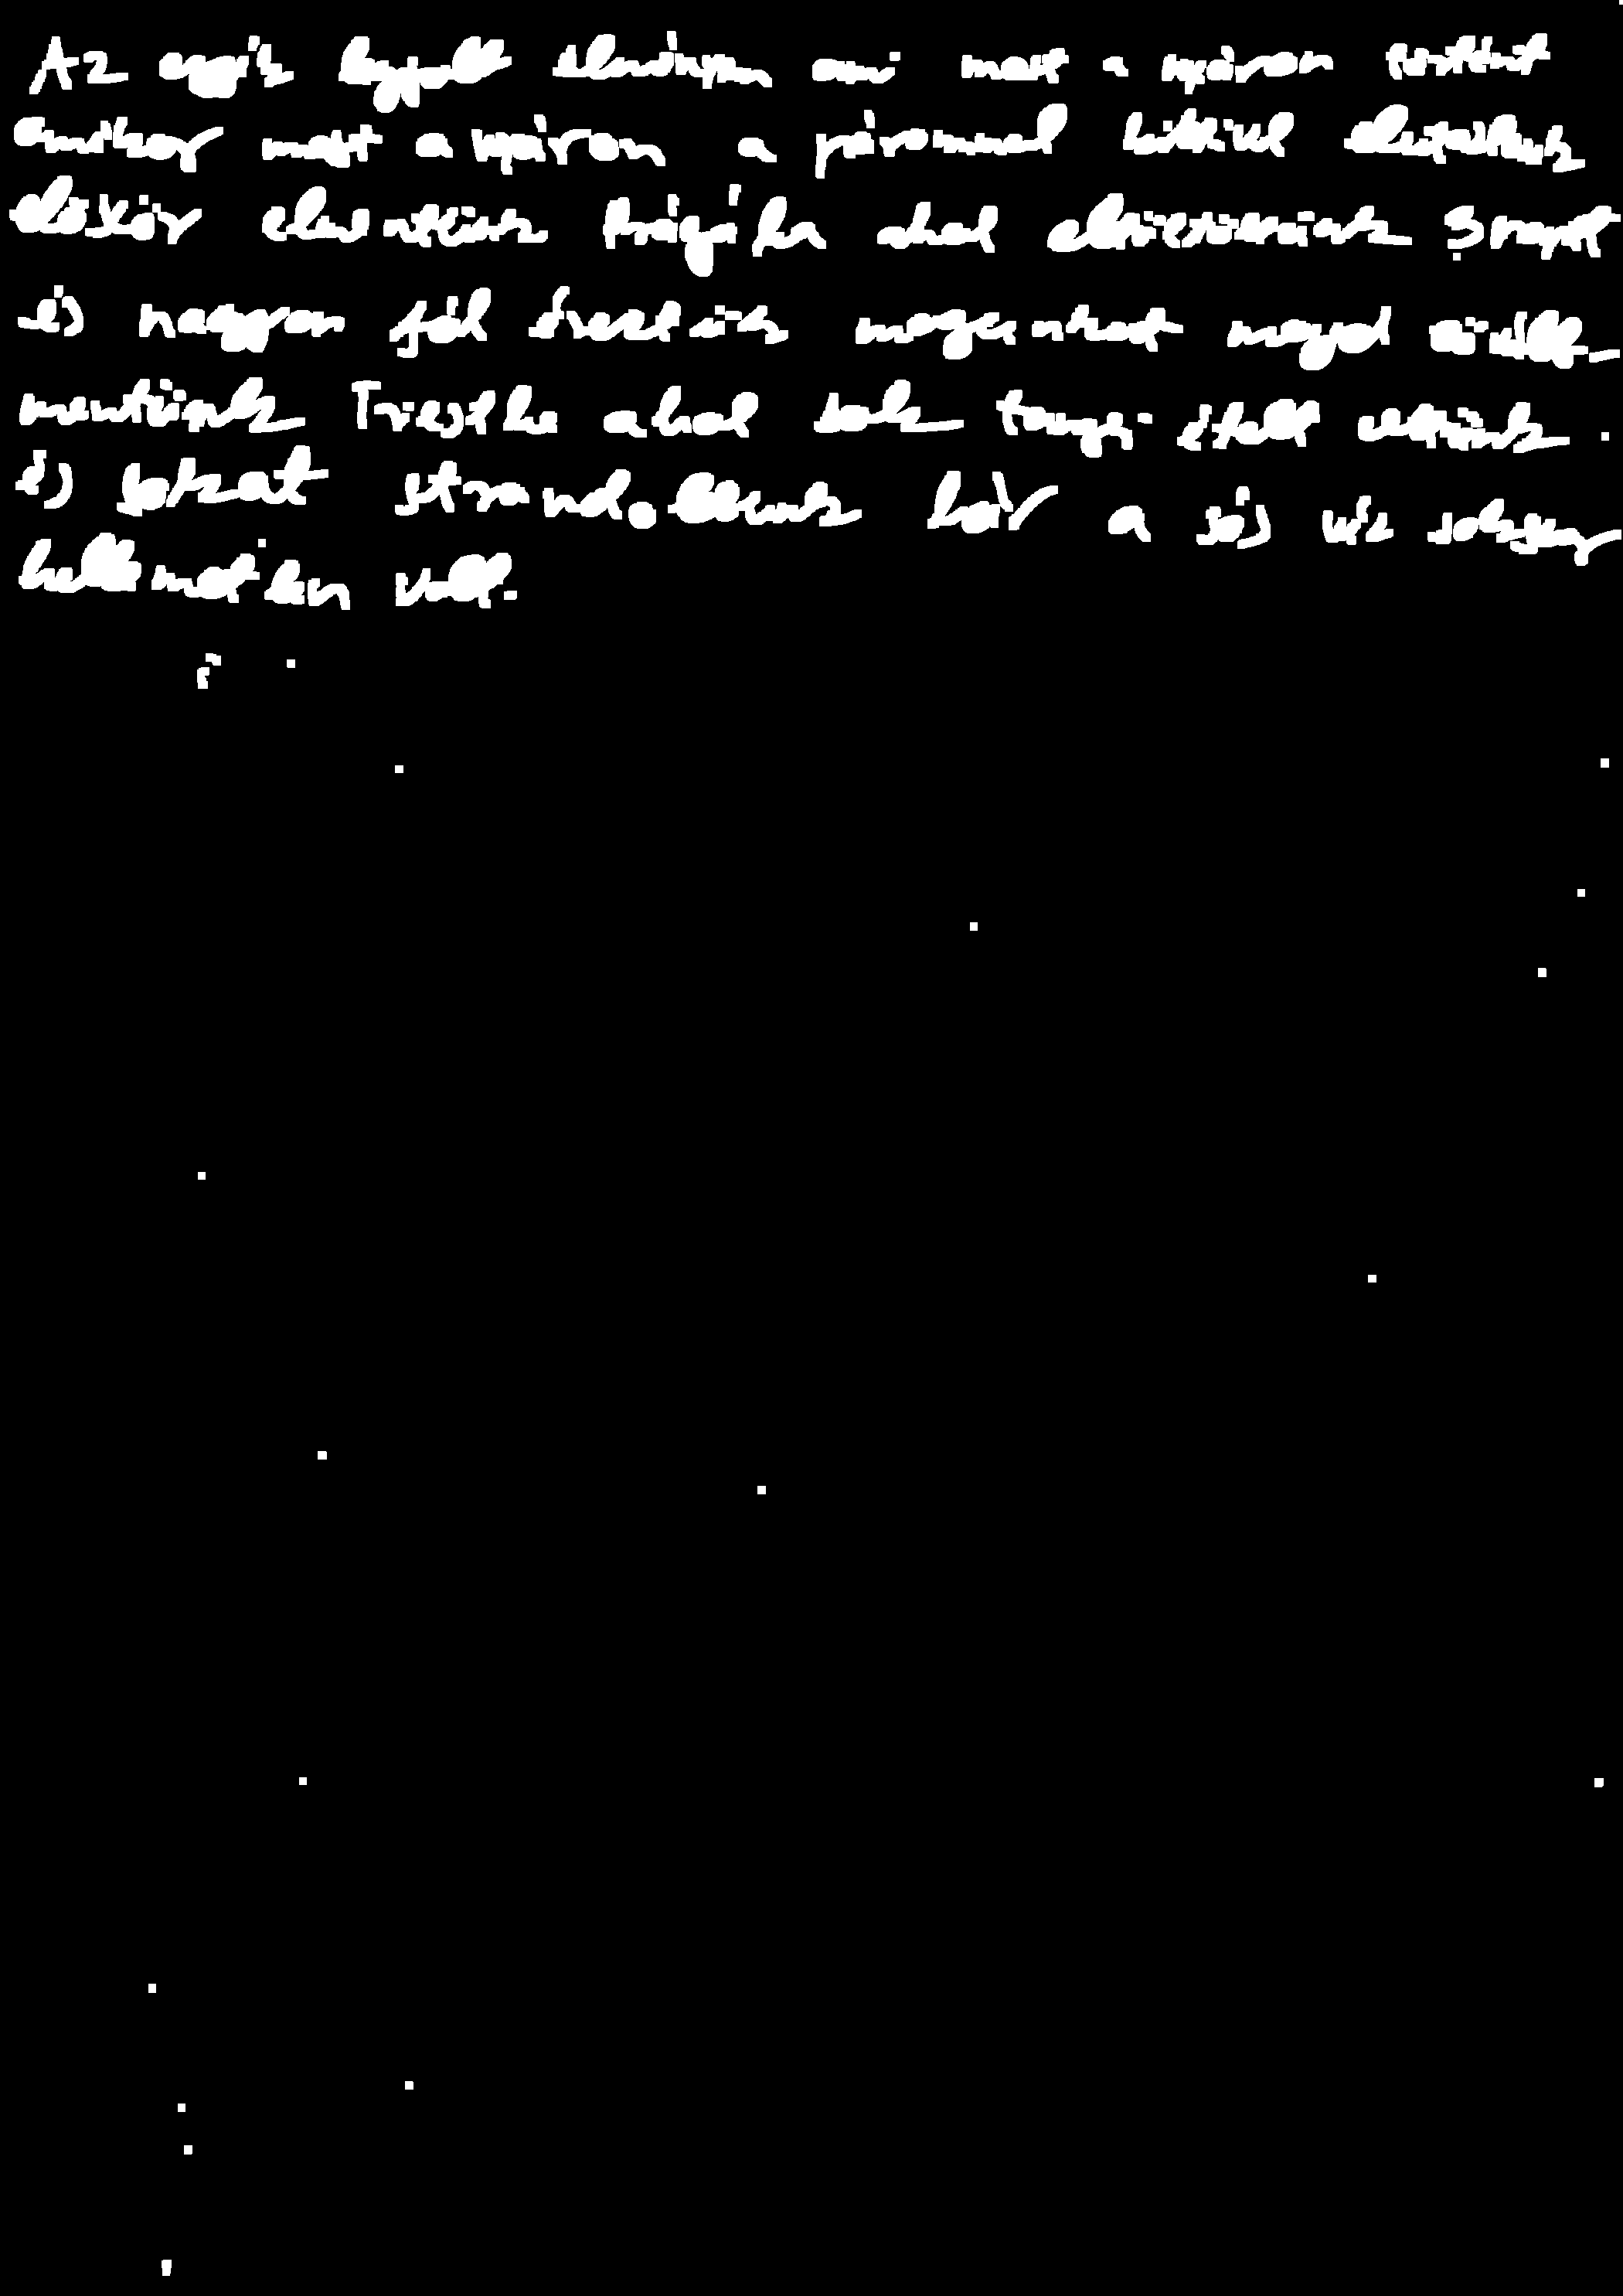 Az egyik legjobb élményem ami most a nyáron történt
amikor most a nyáron a párommal kettesben elutaztunk
először elmentünk Prágába ahol eltöltöttünk 3 napot
és nagyon jól éreztük magunkat majd
mentünk Triestbe ahol sok tengeri ételt ettünk
és sokat strandoltunk bár a sós víz sokszor
kellemetlen volt.